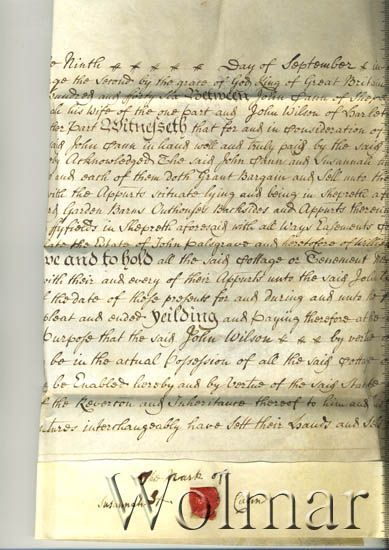 Ninth Day of September in
the Second by the grace of God King of Great Britain
hundred and forty six Between John Cann of She
his wife of the one part and John Wilson of Barley
her part Witnesseth that for and in Consideration of
said John Cann in hand well and truly paid by the said
by Acknowledged The said John Cann and Susannah
and each of them Doth Grant Bargain and Sell unto the
with the Appurts scituate lying and being in Shepreth a
and Garden Barns Outhouses Backsides and Appurts there
in Shepreth aforesaid with all Ways Easements
the Estate of John Palsgrave and heretofore of
ve and to hold all the said Cottage or Tenement
with their and every of their Appurts unto the said John
the Date of these presents for and during and unto
pleat and ended Yeilding and Paying therefore at
Purpose that the said John Wilson by vertue
be in the actual Possession of all the said Cottage
be Enabled hereby and by Vertue of the said Statute
the Reverton and Inheritance thereof to him and
tures interchangeably have Sett their Hands and Seals
The mark of
Susannah Cann
Wolmar